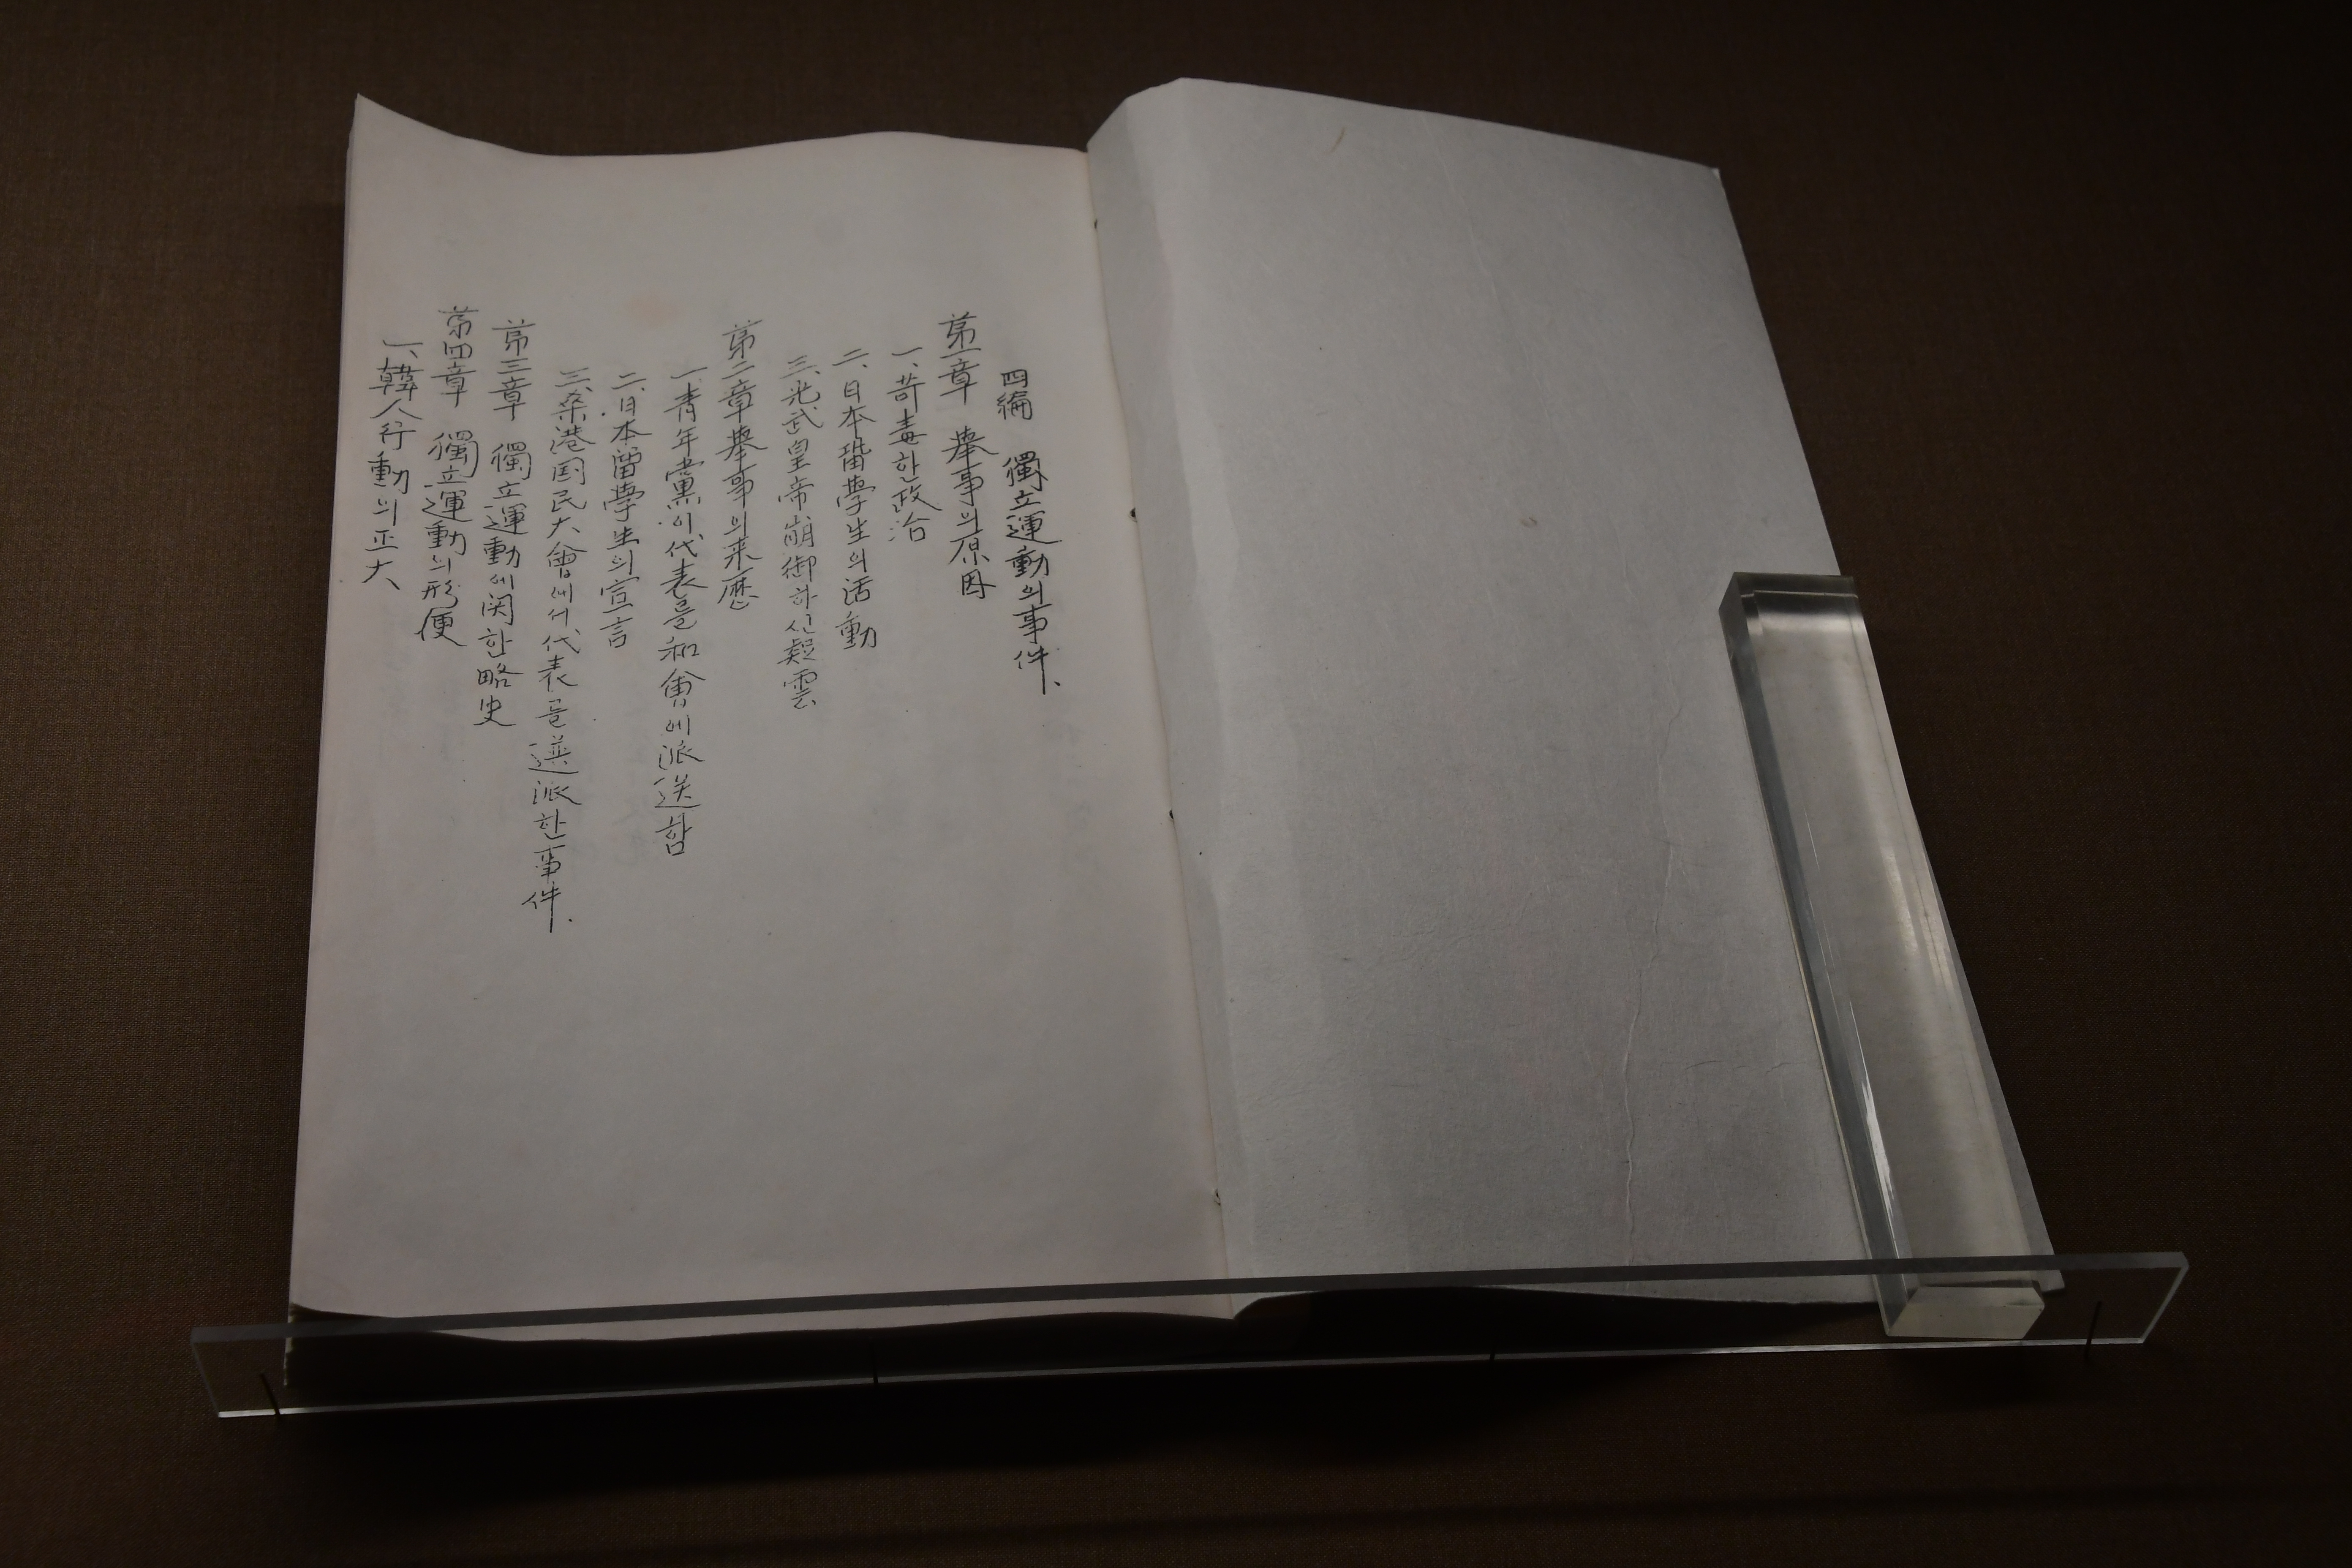 四編 獨立運動의事件、
第一章 擧事의原因
一、苛毒한政治
二、日本留學生의活動
三、光武皇帝崩御하신疑雲
第二章擧事의来歷
一、青年黨이代表를和會에派送함
二、日本留學生의宣言
三、桑港国民大會에서代表를選派한事件.
第三章 獨立運動에関한略史
第四章 獨立運動의形便
一、韓人行動의正大